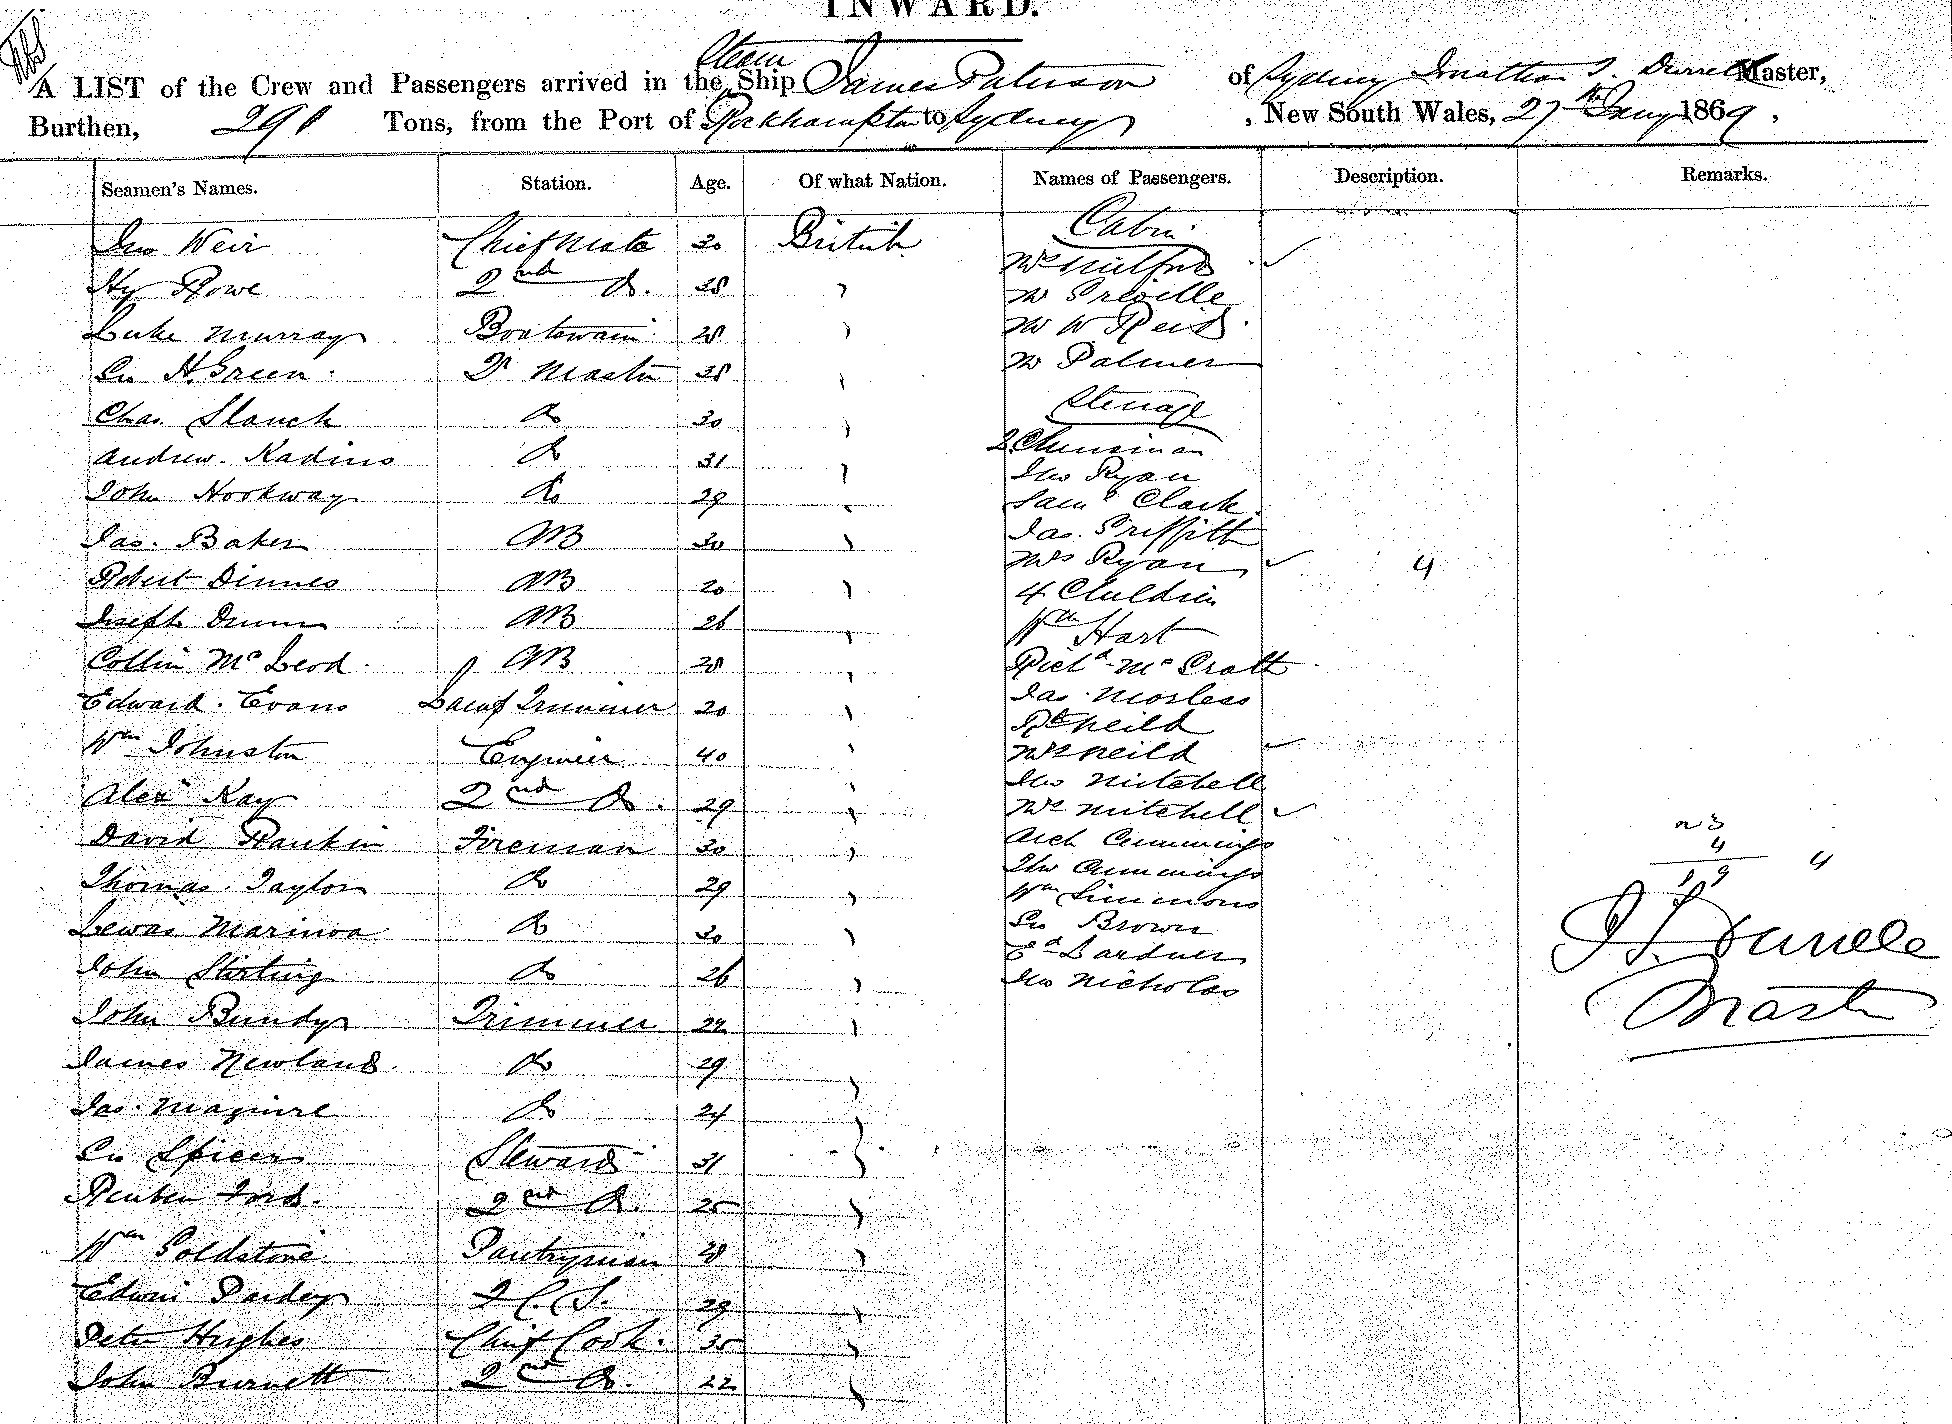 INWARD.
A LIST of the Crew and Passengers arrived in the Steam Ship James Paterson of Sydney Jonathan S. Durrell Master,
Burthen, 291 Tons, from the Port of Rockhampton to Sydney, New South Wales, 27th Jany 1869.
Seamen's Names. Station. Age. Of what Nation. Names of Passengers. Description. Remarks.
Jno Weir Chief Mate 30 British
Hy Rowe 2nd Do. 28 "
Luke Murray Boatswain 28 "
Geo H. Green Qr Master 38 "
Chas. Slauch Do 30 "
Andrew. Kadins Do 31 "
John Hookway Do 29 "
Jas. Baker AB 30 "
Robert Dinnes AB 20 "
Joseph Dunn AB 26 "
Collin McLeod AB 28 "
Edward. Evans Trimmer 20 "
Wm Johnston Engineer 40 "
Alexr Kay 2nd Do. 29 "
David Rankin Fireman 30 "
Thomas. Taylor Do 29 "
Lewas Marinoa Do 30 "
John Stirling Do 26 "
John Bundy Trimmer 22 "
James Newland Do 29 "
Jas. Maguire Do 24 "
Geo Spicer Steward 31 "
Reuben Ford. 2nd Do. 25 "
Wm Goldstone Pantryman 28 "
Edwin Pardey 29 "
Peter Hughes Chief Cook. 35 "
John Burnett 2nd Do. 22 "
Cabin.
Mrs Milford
Mr Greville
Mr W Reid
Mr Palmer
Steerage
2 Chinaman
Jno Ryan
Saml Clark
Jas. Griffith
Mrs Ryan
4 Children 4
Wm Hart
Richd McCratt
Jas. Morless
Rt Neild
Mrs Neild
Jno Mitchell
Mrs Mitchell
Arch Cummings
Thos Cummings
Wm Simmons
Geo Brown
Ed Gardner
Jno Nicholas
4
19 4
J S. Durrell
Master